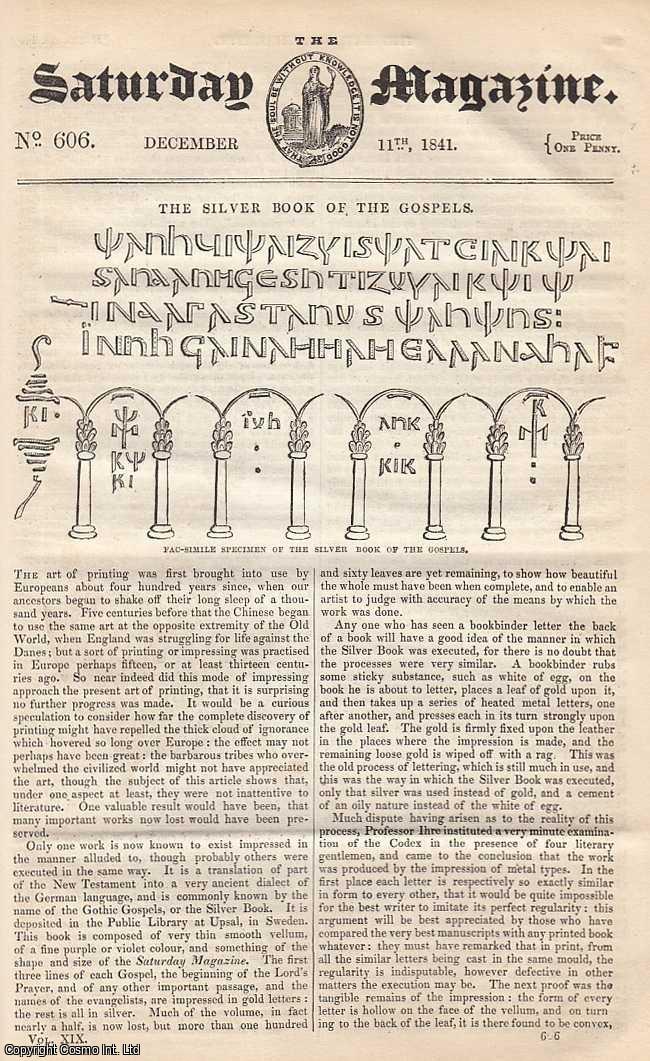 THE
Saturday Magazine.
THAT THE SOUL BE WITHOUT KNOWLEDGE IT IS NOT GOOD
No. 606. DECEMBER 11TH, 1841. { PRICE
ONE PENNY.
THE SILVER BOOK OF THE GOSPELS.
FAC-SIMILE SPECIMEN OF THE SILVER BOOK OF THE GOSPELS.
THE art of printing was first brought into use by
Europeans about four hundred years since, when our
ancestors began to shake off their long sleep of a thou-
sand years. Five centuries before that the Chinese began
to use the same art at the opposite extremity of the Old
World, when England was struggling for life against the
Danes; but a sort of printing or impressing was practised
in Europe perhaps fifteen, or at least thirteen centu-
ries ago. So near indeed did this mode of impressing
approach the present art of printing, that it is surprising
no further progress was made. It would be a curious
speculation to consider how far the complete discovery of
printing might have repelled the thick cloud of ignorance
which hovered so long over Europe: the effect may not
perhaps have been great: the barbarous tribes who over-
whelmed the civilized world might not have appreciated
the art, though the subject of this article shows that,
under one aspect at least, they were not inattentive to
literature. One valuable result would have been, that
many important works now lost would have been pre-
served.
Only one work is now known to exist impressed in
the manner alluded to, though probably others were
executed in the same way. It is a translation of part
of the New Testament into a very ancient dialect of
the German language, and is commonly known by the
name of the Gothic Gospels, or the Silver Book. It is
deposited in the Public Library at Upsal, in Sweden.
This book is composed of very thin smooth vellum,
of a fine purple or violet colour, and something of the
shape and size of the Saturday Magazine. The first
three lines of each Gospel, the beginning of the Lord's
Prayer, and of any other important passage, and the
names of the evangelists, are impressed in gold letters:
the rest is all in silver. Much of the volume, in fact
nearly a half, is now lost, but more than one hundred
VOL. XIX.
and sixty leaves are yet remaining, to show how beautiful
the whole must have been when complete, and to enable an
artist to judge with accuracy of the means by which the
work was done.
Any one who has seen a bookbinder letter the back
of a book will have a good idea of the manner in which
the Silver Book was executed, for there is no doubt that
the processes were very similar. A bookbinder rubs
some sticky substance, such as white of egg, on the
book he is about to letter, places a leaf of gold upon it,
and then takes up a series of heated metal letters, one
after another, and presses each in its turn strongly upon
the gold leaf. The gold is firmly fixed upon the leather
in the places where the impression is made, and the
remaining loose gold is wiped off with a rag. This was
the old process of lettering, which is still much in use, and
this was the way in which the Silver Book was executed,
only that silver was used instead of gold, and a cement
of an oily nature instead of the white of egg.
Much dispute having arisen as to the reality of this
process, Professor Ihre instituted a very minute examina-
tion of the Codex in the presence of four literary
gentlemen, and came to the conclusion that the work
was produced by the impression of metal types. In the
first place each letter is respectively so exactly similar
in form to every other, that it would be quite impossible
for the best writer to imitate its perfect regularity: this
argument will be best appreciated by those who have
compared the very best manuscripts with any printed book
whatever: they must have remarked that in print, from
all the similar letters being cast in the same mould, the
regularity is indisputable, however defective in other
matters the execution may be. The next proof was the
tangible remains of the impression: the form of every
letter is hollow on the face of the vellum, and on turn-
ing to the back of the leaf, it is there found to be convex,
Copyright Cosmo Int. Ltd.